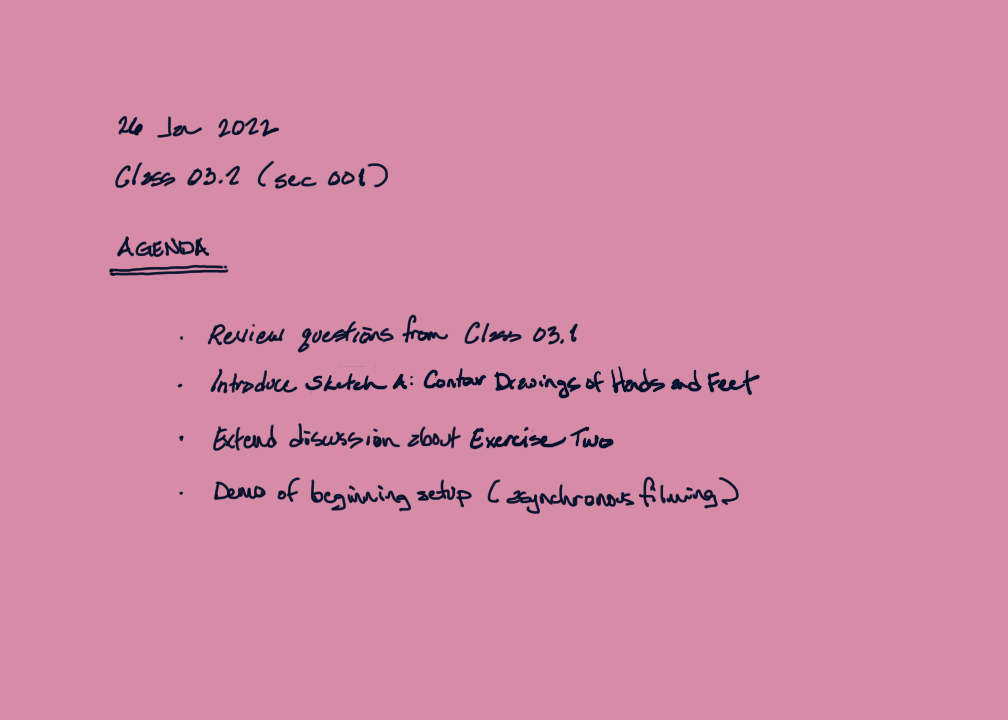 26 Jan 2022
Class 03.2 (sec 001)
AGENDA
· Review questions from Class 03.1
· Introduce Sketch A: Contour Drawings of Hands and Feet
· Extend discussion about Exercise Two
· Demo of beginning setup (asynchronous filming)